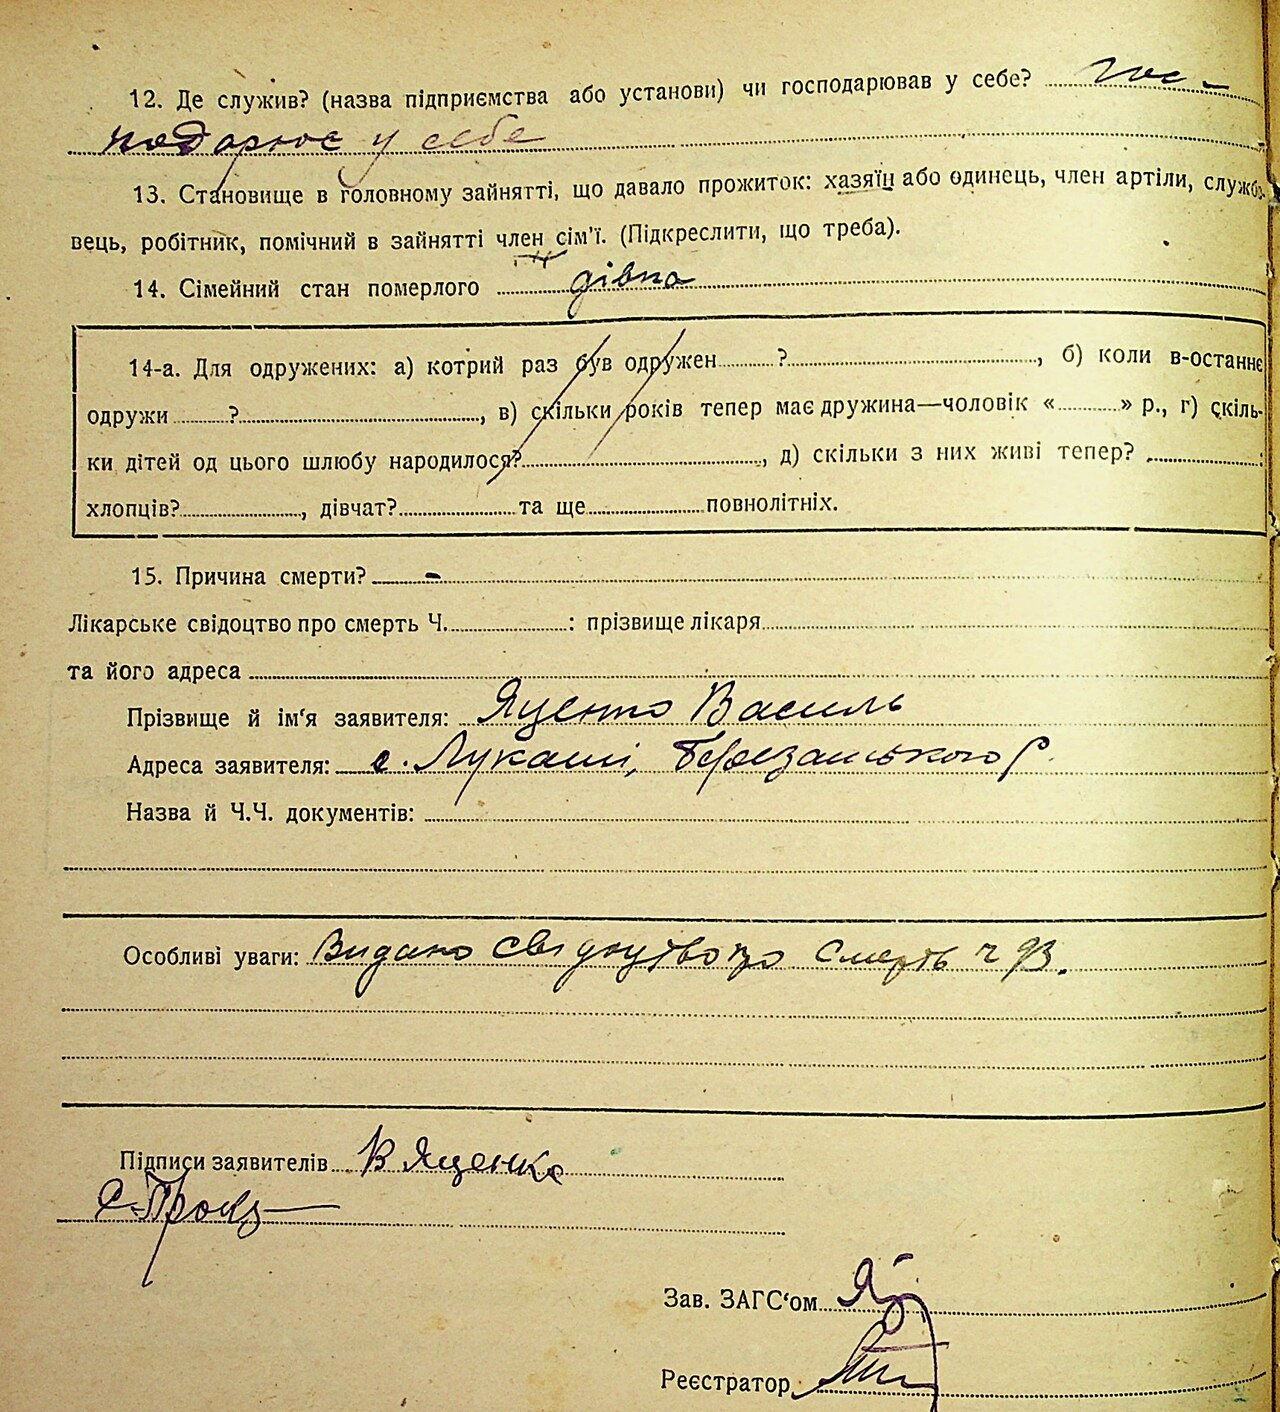 12. Де служив? (назва підприємства або установи) чи господарював у себе? гос-
подарює у себе
13. Становище в головному зайнятті, що давало прожиток: хазяїн або одинець, член артіли, службо-
вець, робітник, помічний в зайнятті член сім'ї. (Підкреслити, що треба).
14. Сімейний стан померлого
14-а. Для одружених: а) котрий раз був одружен ? , б) коли в-останнє
одружи ? , в) скільки років тепер має дружина—чоловік « » р., г) скіль-
ки дітей од цього шлюбу народилося? , д) скільки з них живі тепер? :
хлопців? , дівчат? та ще повнолітніх.
15. Причина смерти? -
Лікарське свідоцтво про смерть Ч. : прізвище лікаря
та його адреса
Прізвище й ім'я заявителя: Яценко Василь
Адреса заявителя: с. Лукаші, Березанського р.
Назва й Ч.Ч. документів:
Особливі уваги: Видано свідоцтво про смерть ч 93.
Підписи заявителів В Яценко
Зав. ЗАГС'ом
Реєстратор